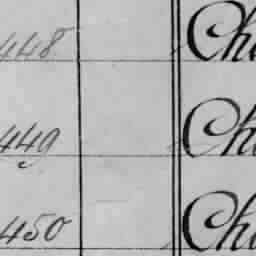 448 Cha
449 Cha
450 Cha